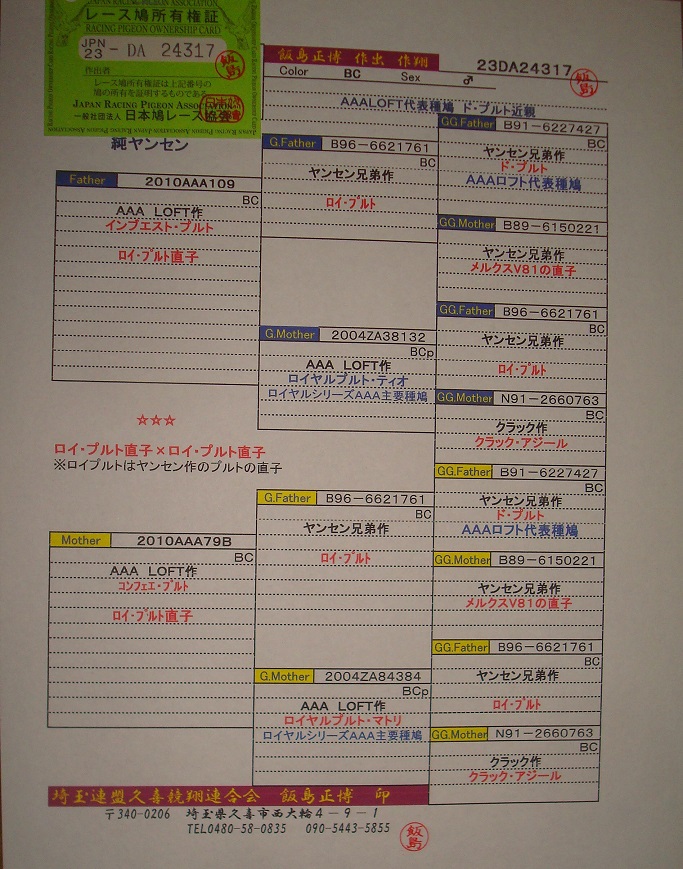 JAPAN RACING PIGEON ASSOCIATION
レース鳩所有権証
RACING PIGEON OWNERSHIP CARD
JPN
23 - DA 24317
作出者
レース鳩所有権証は上記番号の
鳩の所有を証明するものである
JAPAN RACING PIGEON ASSOCIATION
一般社団法人 日本鳩レース協会
飯島正博 作出 作翔
23DA24317
飯島
Color BC Sex ♂
AAALOFT代表種鳩 ド・プルト近親
純ヤンセン
Father 2010AAA109
BC
AAA LOFT作
インブエスト・プルト
ロイ・プルト直子
G.Father B96-6621761
BC
ヤンセン兄弟作
ロイ・プルト
G.Mother 2004ZA38132
BCp
AAA LOFT作
ロイヤルプルト・ティオ
ロイヤルシリーズAAA主要種鳩
GG.Father B91-6227427
BC
ヤンセン兄弟作
ド・プルト
AAAロフト代表種鳩
GG.Mother B89-6150221
ヤンセン兄弟作
メルクスV81の直子
GG.Father B96-6621761
BC
ヤンセン兄弟作
ロイ・プルト
GG.Mother N91-2660763
BC
クラック作
クラック・アジール
☆☆☆
ロイ・プルト直子×ロイ・プルト直子
※ロイプルトはヤンセン作のプルトの直子
Mother 2010AAA79B
BC
AAA LOFT作
コンフェエ・プルト
ロイ・プルト直子
G.Father B96-6621761
BC
ヤンセン兄弟作
ロイ・プルト
G.Mother 2004ZA84384
BCp
AAA LOFT作
ロイヤルプルト・マトリ
ロイヤルシリーズAAA主要種鳩
GG.Father B91-6227427
BC
ヤンセン兄弟作
ド・プルト
AAAロフト代表種鳩
GG.Mother B89-6150221
ヤンセン兄弟作
メルクスV81の直子
GG.Father B96-6621761
BC
ヤンセン兄弟作
ロイ・プルト
GG.Mother N91-2660763
BC
クラック作
クラック・アジール
埼玉連盟久喜競翔連合会 飯島正博 印
〒340-0206 埼玉県久喜市西大輪4-9-1
TEL0480-58-0835 090-5443-5855
飯島